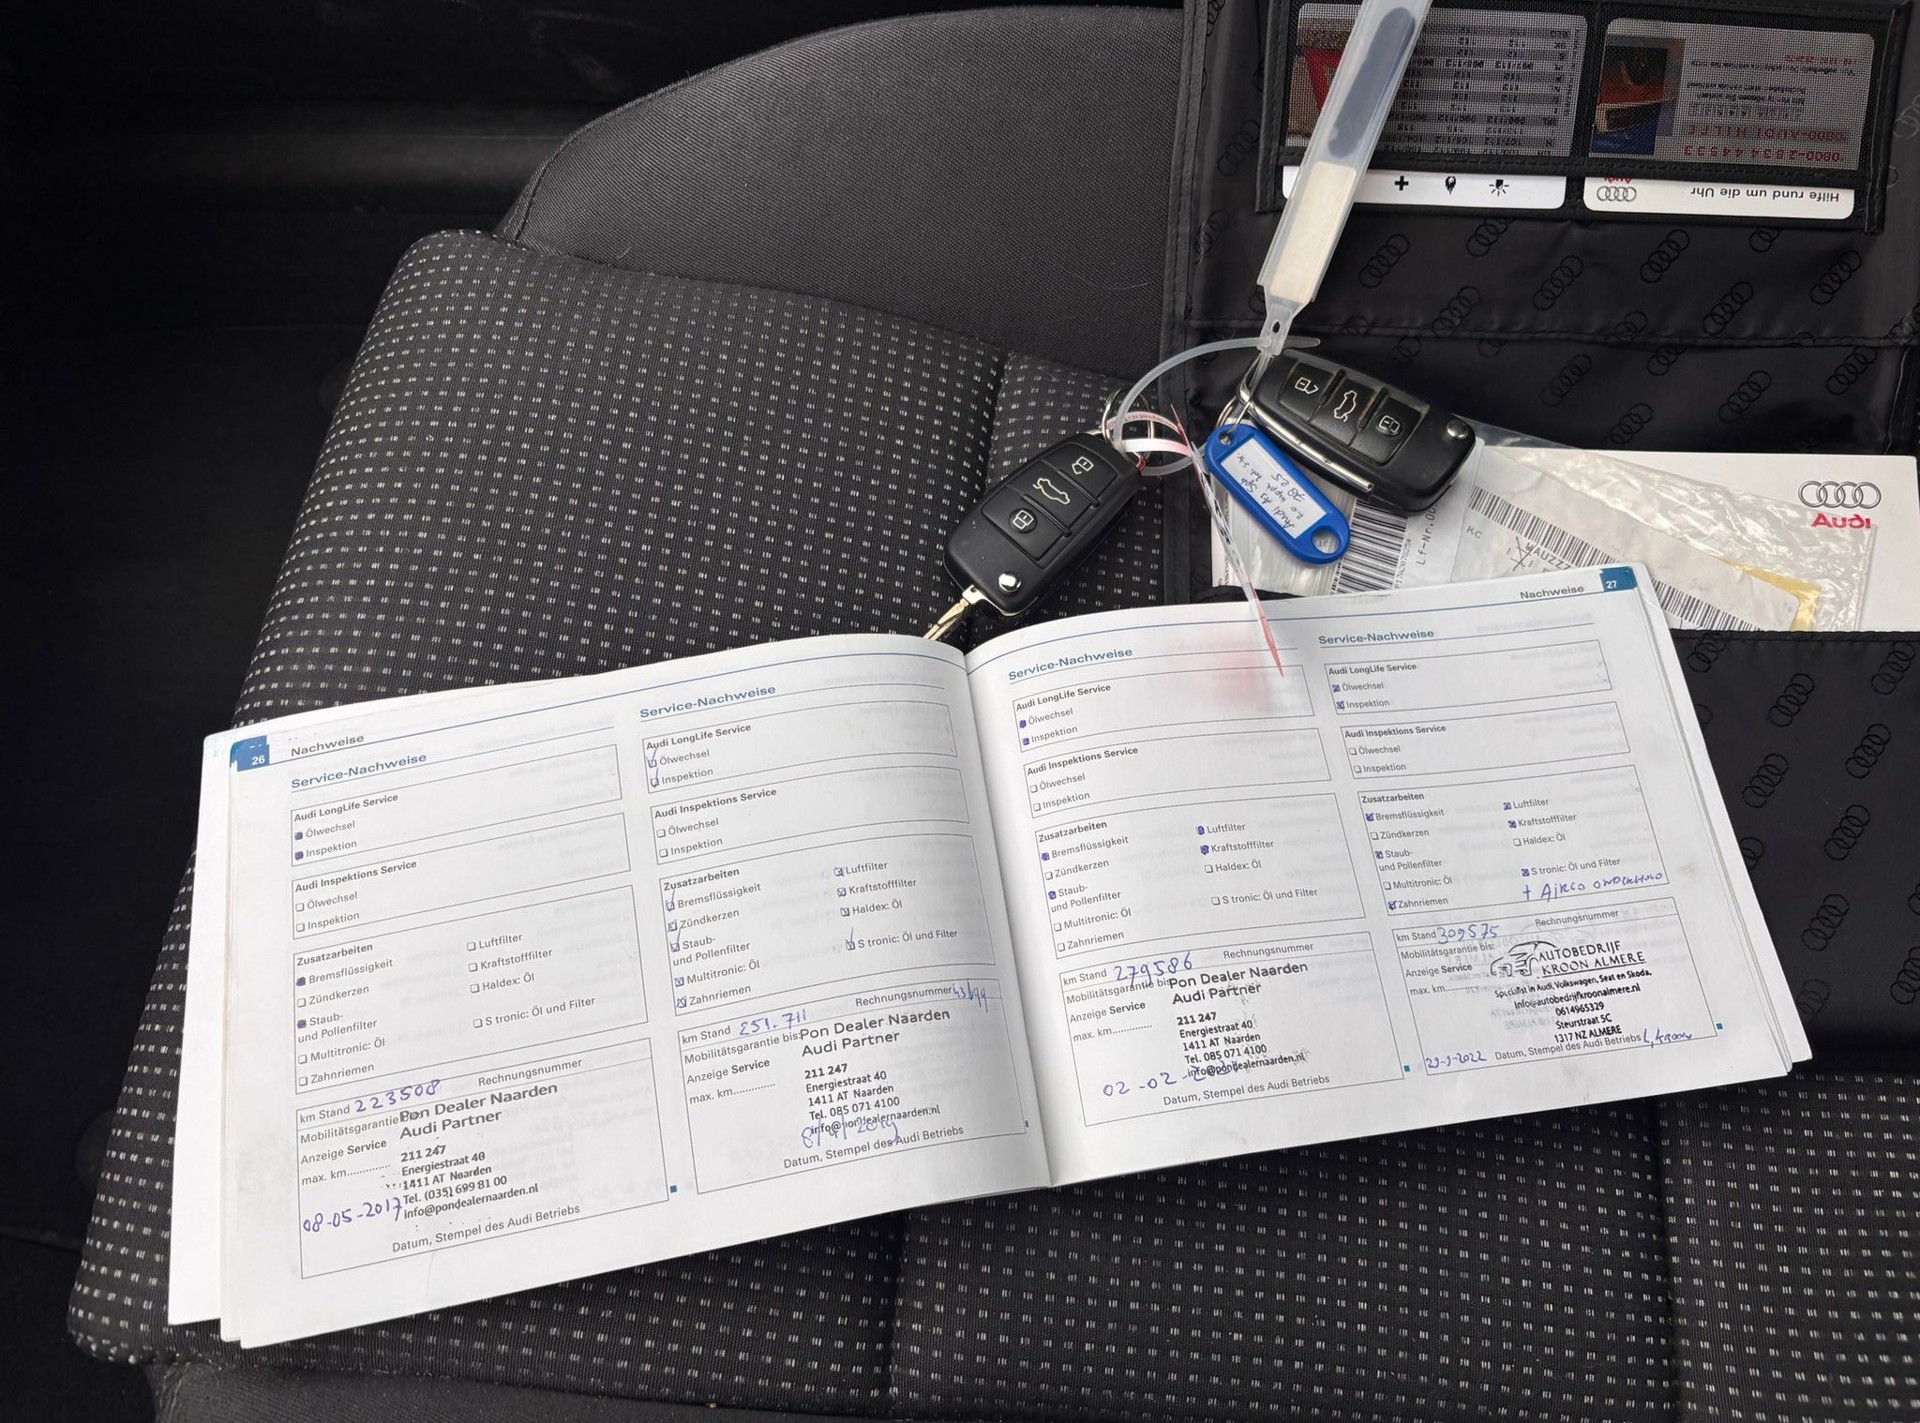 Hilfe rund um die Uhr
Audi
0800-28344533
0800-AUDI HILFE
Audi
KC
WAUZZZ
Audi A3 Spb
26
Nachweise
Service-Nachweise
Audi LongLife Service
Ölwechsel
Inspektion
Audi Inspektions Service
Ölwechsel
Inspektion
Zusatzarbeiten
Bremsflüssigkeit
Zündkerzen
Staub-
und Pollenfilter
Multitronic: Öl
Zahnriemen
Luftfilter
Kraftstofffilter
Haldex: Öl
S tronic: Öl und Filter
km Stand 223508
Rechnungsnummer
Mobilitätsgarantie
Pon Dealer Naarden
Anzeige Service
Audi Partner
max. km.............
211 247
Energiestraat 40
1411 AT Naarden
Tel. (035) 699 81 00
info@pondealernaarden.nl
08-05-2017
Datum, Stempel des Audi Betriebs
Service-Nachweise
Audi LongLife Service
Ölwechsel
Inspektion
Audi Inspektions Service
Ölwechsel
Inspektion
Zusatzarbeiten
Bremsflüssigkeit
Zündkerzen
Staub-
und Pollenfilter
Multitronic: Öl
Zahnriemen
Luftfilter
Kraftstofffilter
Haldex: Öl
S tronic: Öl und Filter
km Stand 251.711
Rechnungsnummer
Mobilitätsgarantie bis:
Pon Dealer Naarden
Anzeige Service
Audi Partner
max. km.............
211 247
Energiestraat 40
1411 AT Naarden
Tel. 085 071 4100
info@pondealernaarden.nl
Datum, Stempel des Audi Betriebs
Nachweise
27
Service-Nachweise
Audi LongLife Service
Ölwechsel
Inspektion
Audi Inspektions Service
Ölwechsel
Inspektion
Zusatzarbeiten
Bremsflüssigkeit
Zündkerzen
Staub-
und Pollenfilter
Multitronic: Öl
Zahnriemen
Luftfilter
Kraftstofffilter
Haldex: Öl
S tronic: Öl und Filter
km Stand 279586
Rechnungsnummer
Mobilitätsgarantie bis
Pon Dealer Naarden
Anzeige Service
Audi Partner
max. km.............
211 247
Energiestraat 40
1411 AT Naarden
Tel. 085 071 4100
info@pondealernaarden.nl
02-02-
Datum, Stempel des Audi Betriebs
Service-Nachweise
Audi LongLife Service
Ölwechsel
Inspektion
Audi Inspektions Service
Ölwechsel
Inspektion
Zusatzarbeiten
Bremsflüssigkeit
Zündkerzen
Staub-
und Pollenfilter
Multitronic: Öl
Zahnriemen
Luftfilter
Kraftstofffilter
Haldex: Öl
S tronic: Öl und Filter
+ Airco onderhoud
km Stand 309575
Rechnungsnummer
Mobilitätsgarantie bis:
Anzeige Service
max. km.............
AUTOBEDRIJF
KROON ALMERE
Specialist in Audi, Volkswagen, Seat en Skoda.
info@autobedrijfkroonalmere.nl
0614965329
Steurstraat 5C
1317 NZ ALMERE
Datum, Stempel des Audi Betriebs